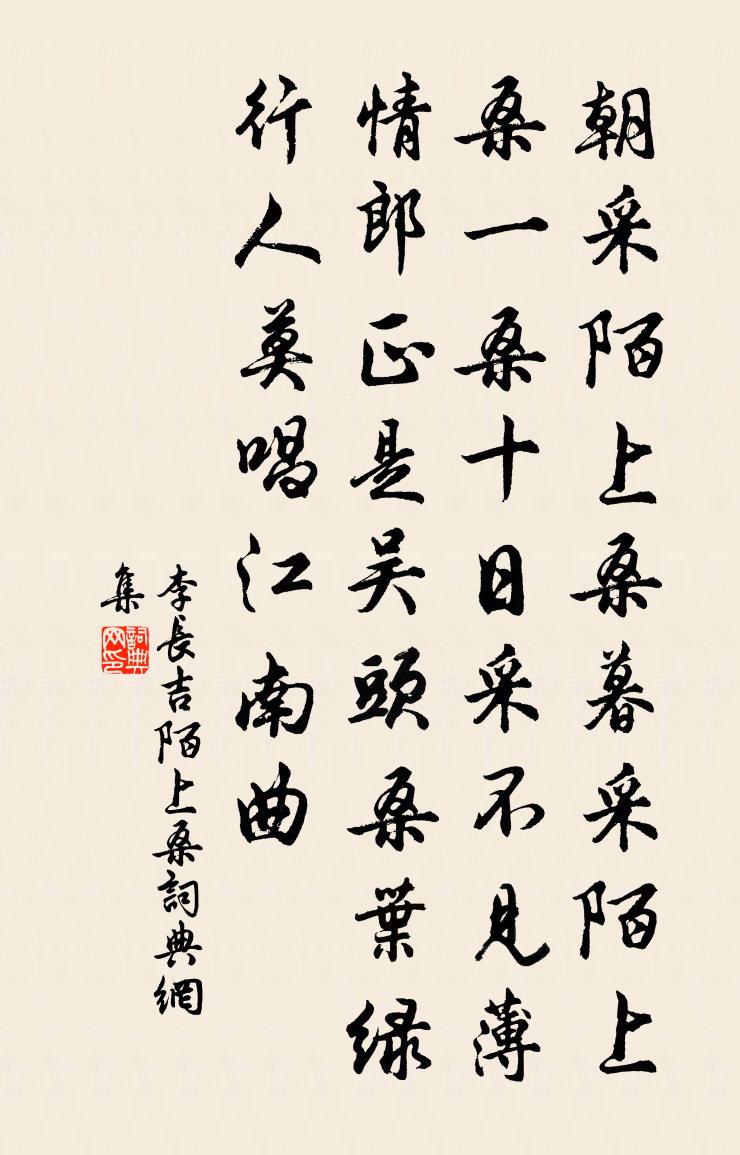 朝采陌上桑暮采陌上
桑一桑十日采不見薄
情郎正是吴頭桑葉綠
行人莫唱江南曲
李長吉陌上桑詞典網
集
詞典网印